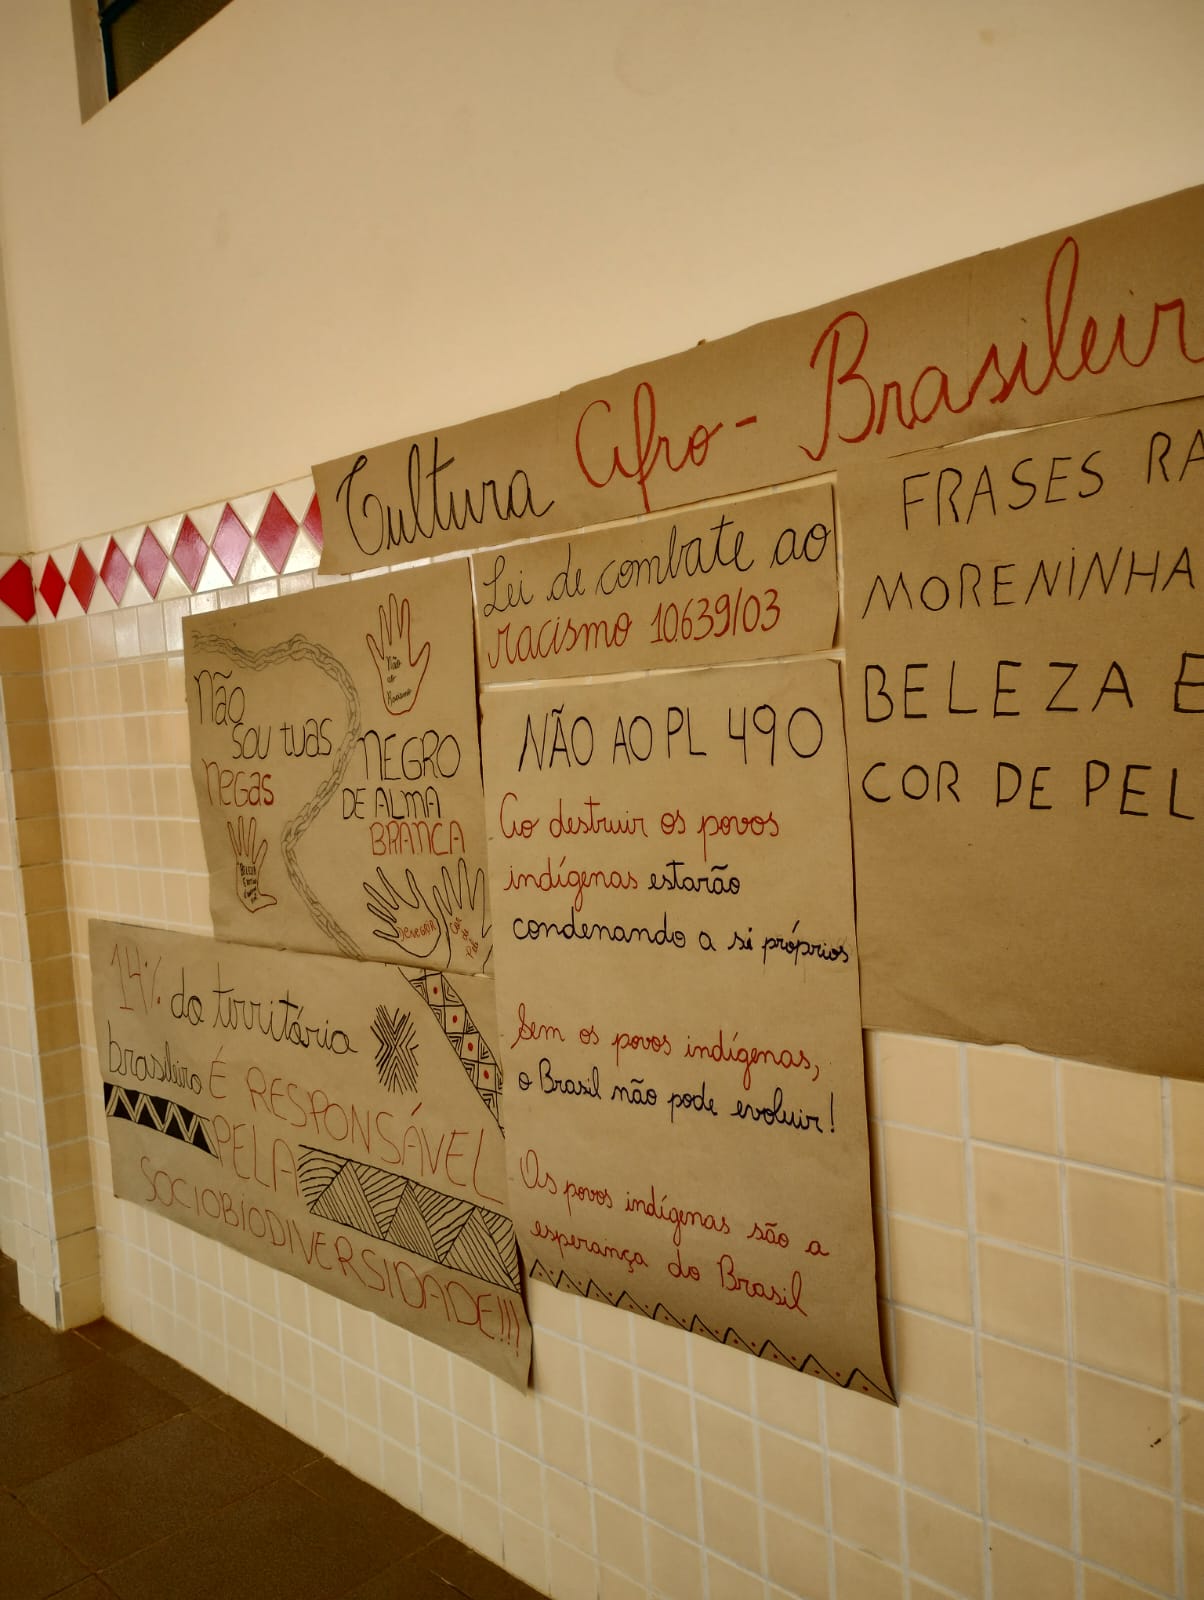 Cultura Afro-Brasileir
Lei de combate ao
racismo 10.639/03
Não
sou tuas
negas
Não
ao
Racismo
NEGRO
DE ALMA
BRANCA
BELEZA
DENEGRIR
Cor
de
Pele
14% do território
brasileiro É RESPONSÁVEL
PELA
SOCIOBIODIVERSIDADE!!!
NÃO AO PL 490
Ao destruir os povos
indígenas estarão
condenando a si próprios
Sem os povos indígenas,
o Brasil não pode evoluir!
Os povos indígenas são a
esperança do Brasil
FRASES RA
MORENINHA
BELEZA E
COR DE PEL